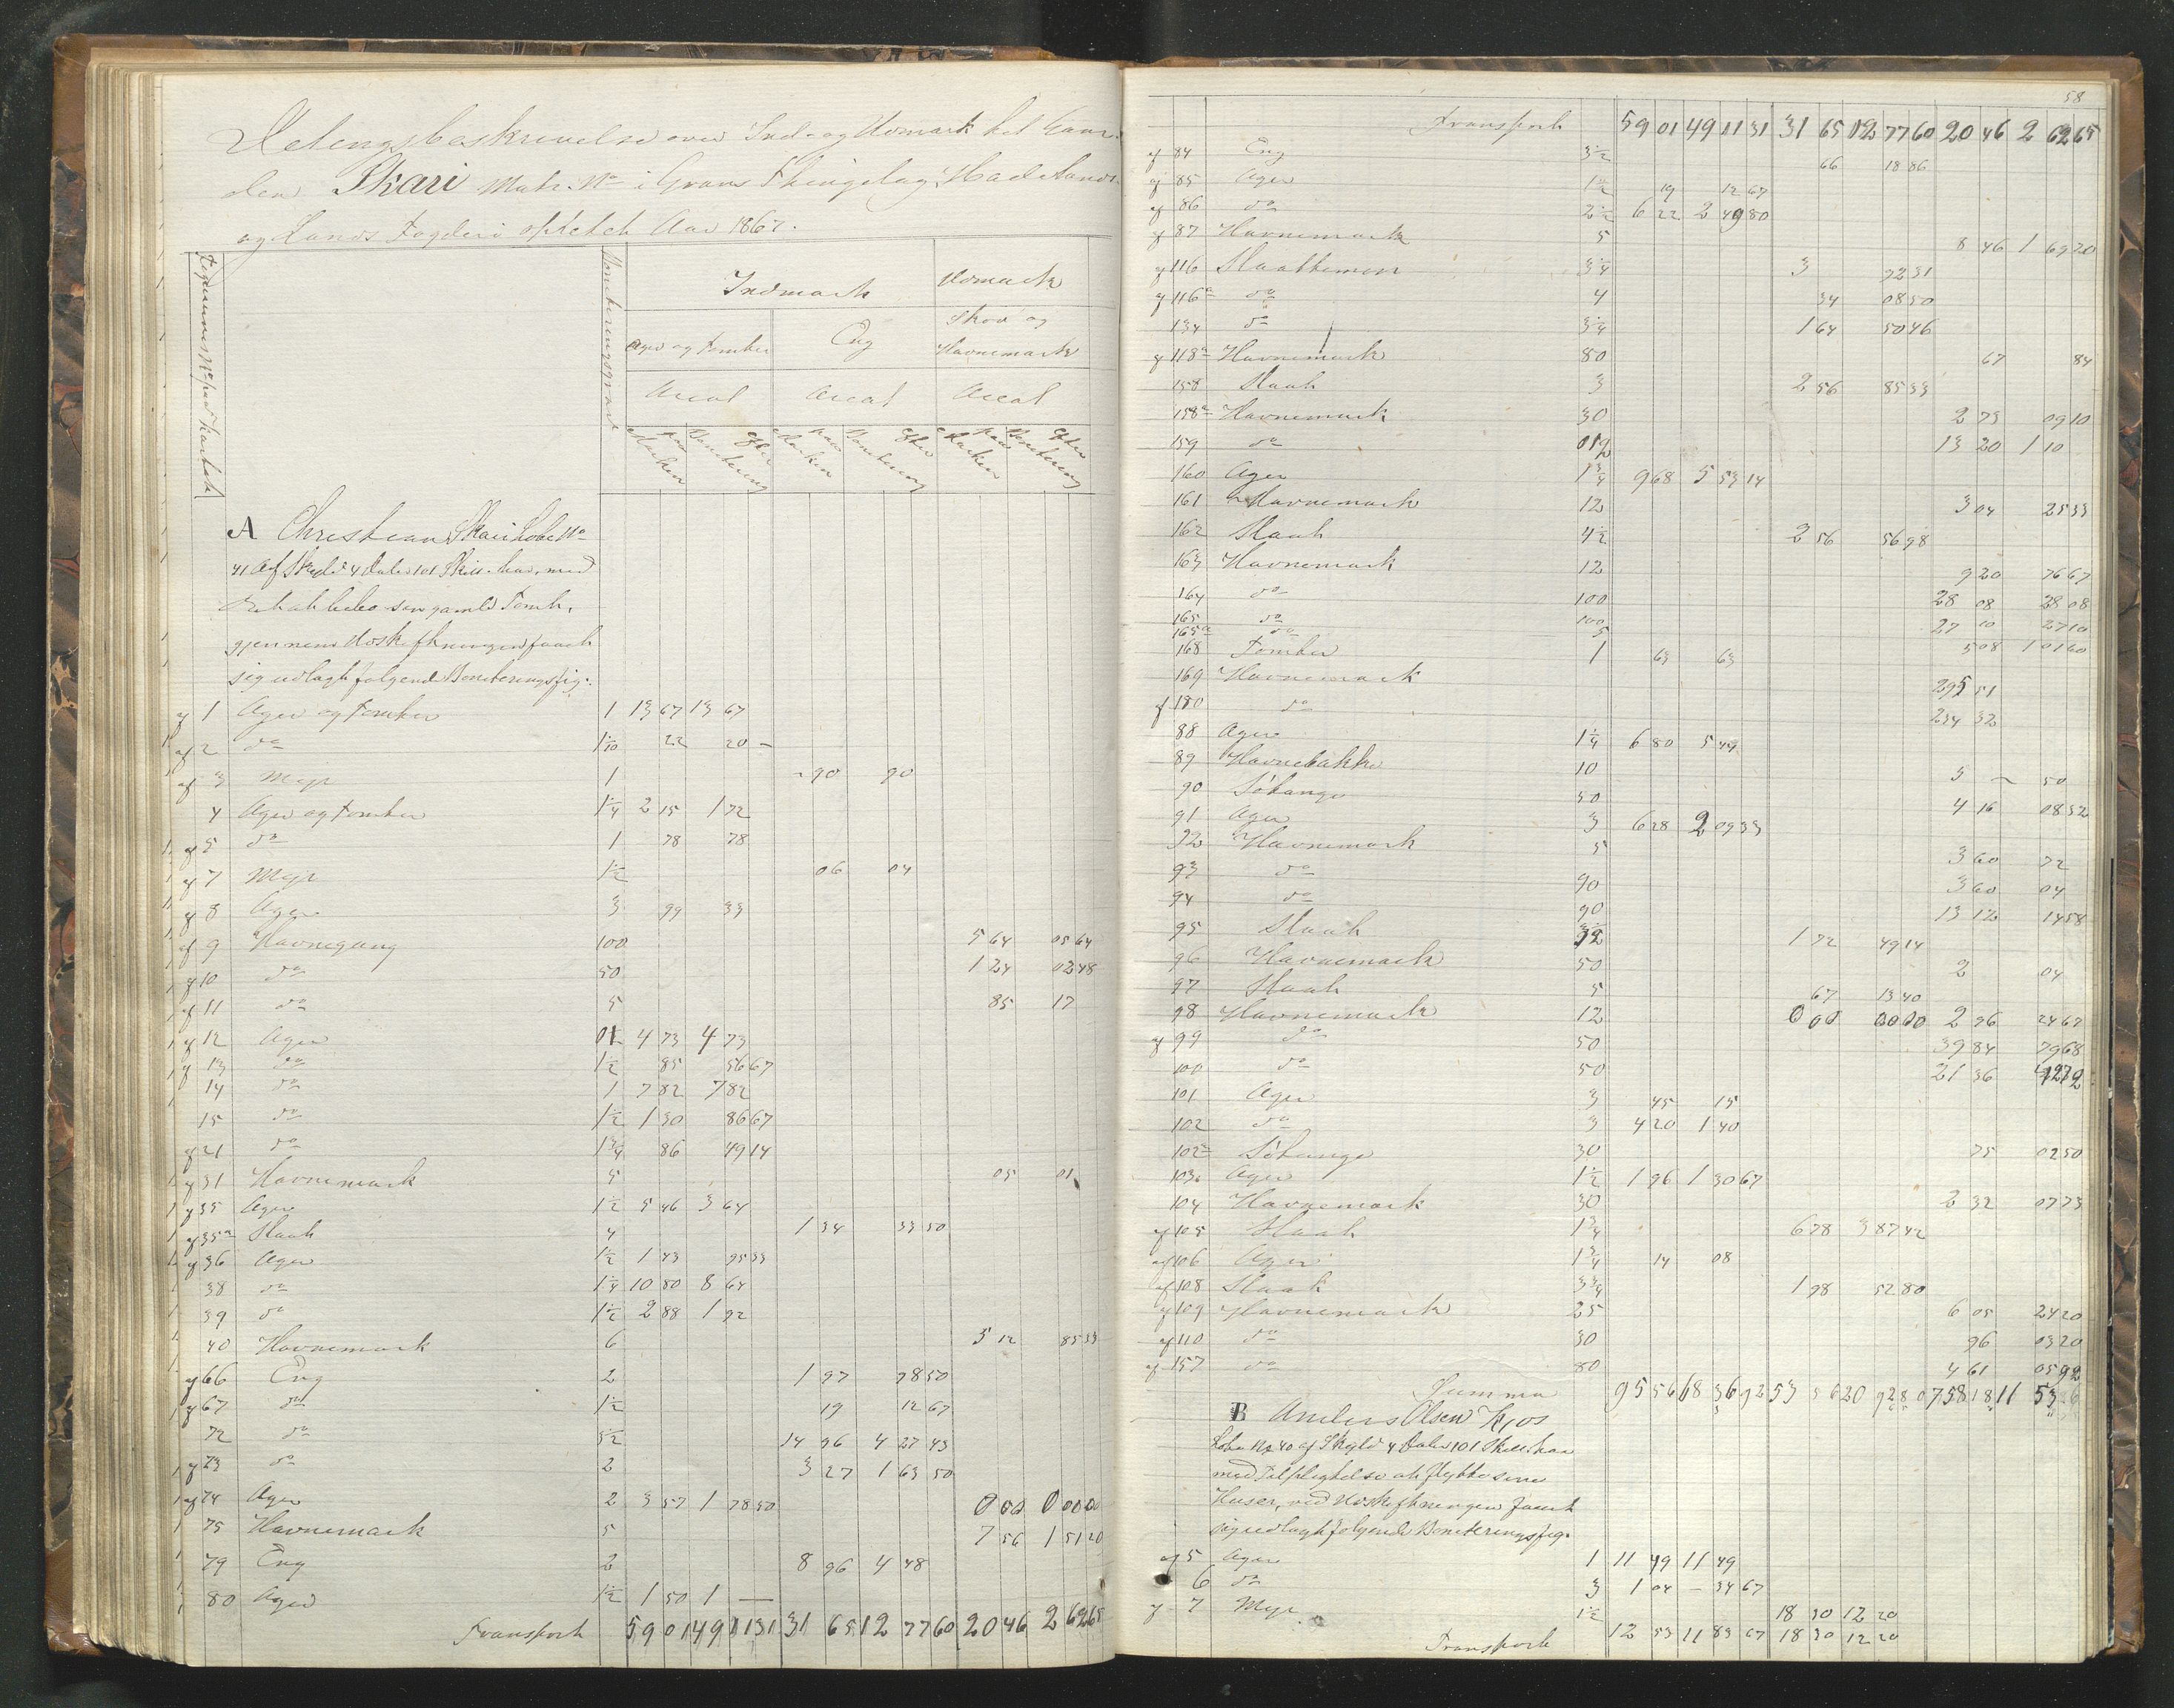 Delingsbeskrivelse over Ind- og Udmark til Gaar-
den Skari Matr. No i Grans Thinglag, Hadelands
og Lands Fogderi optet Aar 1867.
Figurernes No paa Kartet
Boniteringsgrad
Indmark
Udmark
Ager og Tomter
Eng
Skov og Havnemark
Areal
Areal
Areal
paa Marken
efter Bonitering
paa Marken
efter Bonitering
paa Marken
efter Bonitering
A Christian Skari Løbe No
41 af Skyld 4 Daler 101 Skill. har, med
sin gamle Tomt,
gjennem Udskiftningen faaet
sig udlagt følgende Boniteringsfig:
af 1 Ager og Tomter 1 13 67 13 67
af 2 do 1 1/10 22 20 –
af 3 Myr 1 – 90 90
4 Ager og Tomter 1 1/4 2 15 1 72
af 5 do 1 78 78
af 7 Myr 1 1/2 06 04
af 8 Ager 3 99 33
af 9 Havnegang 100 5 64 05 64
af 10 do 50 1 24 02 48
af 11 do 5 85 17
af 12 Ager 01 4 73 4 73
af 13 do 1 1/2 85 56 67
14 do 1 7 82 7 82
15 do 1 1/2 1 30 86 67
af 21 do 1 3/4 86 49 14
af 31 Havnemark 5 05 01
af 35 Ager 1 1/2 5 46 3 64
af 35a Slaat 4 1 34 33 50
af 36 Ager 1 1/2 1 43 95 33
38 do 1 1/4 10 80 8 64
39 do 1 1/2 2 88 1 92
40 Havnemark 6 5 12 85 33
af 66 Eng 2 1 97 98 50
af 67 do 1 1/2 19 12 67
72 do 3 1/2 14 96 4 27 43
af 73 do 2 3 27 1 63 50
af 74 Ager 2 3 57 1 78 50 0 00 0 00 00
75 Havnemark 5 7 56 1 51 20
79 Eng 2 8 96 4 48
80 Ager 1 1/2 1 50 1 —
Transport 59 01 49 11 31 31 65 12 77 60 20 46 2 62 65
58
Transport 59 01 49 11 31 31 65 12 77 60 20 46 2 62 65
af 84 Eng 3 1/2 66 18 86
af 85 Ager 1 1/2 19 12 67
af 86 do 2 1/2 6 22 2 49 80
af 87 Havnemark 5 8 46 1 69 20
af 116 Slaattemon 3 1/4 3 92 31
af 116a do 4 34 08 50
134 do 3 1/4 1 64 50 46
af 118a Havnemark 80 67 84
158 Slaat 3 2 56 85 33
158a Havnemark 30 2 73 09 10
159 do 012 13 20 1 10
160 Ager 1 3/4 9 68 5 53 14
161 Havnemark 12 3 04 25 33
162 Slaat 4 1/2 2 56 56 98
163 Havnemark 12 9 20 76 67
164 do 100 28 08 28 08
165 do 100 27 10 27 10
165a do 5 5 08 1 01 60
168 Tomter 1 63 63
169 Havnemark 295 51
af 180 do 234 32
88 Ager 1 1/4 6 80 5 44
89 Havnebakke 10 5 – 50
90 Løkange 50 4 16 08 32
91 Ager 3 6 28 2 09 33
92 Havnemark 5 3 60 72
93 do 90 3 60 04
94 do 90 13 12 14 58
95 Slaat 3 1/2 1 72 49 14
96 Havnemark 50 2 04
97 Slaat 5 67 13 40
98 Havnemark 12 0 00 00 00 2 96 24 67
af 99 do 50 39 84 79 68
100 do 50 21 36 42 72
101 Ager 3 45 15
102 do 3 4 20 1 40
102a Løkange 30 75 02 50
103 Ager 1 1/2 1 96 1 30 67
104 Havnemark 30 2 32 07 73
af 105 Slaat 1 3/4 6 78 3 87 42
af 106 Ager 1 3/4 14 08
af 108 Slaat 3 3/4 1 98 52 80
af 109 Havnemark 25 6 05 24 20
af 110 do 30 96 03 20
af 157 do 80 4 61 05 92
Summa 95 56 68 36 92 53 56 20 92 80 758 18 11 53
B Anders Olsen Kjos
Løbe No 40 af Skyld 4 Daler 101 Skill. har
med Tilpligtelse at flytte sine
Huser, ved Udskiftningen faaet
sig udlagt følgende Boniteringsfig:
af 5 Ager 1 11 49 11 49
6 do 3 1 04 – 34 67
af 7 Myr 1 1/2 18 30 12 20
Transport 12 53 11 83 67 18 30 12 20